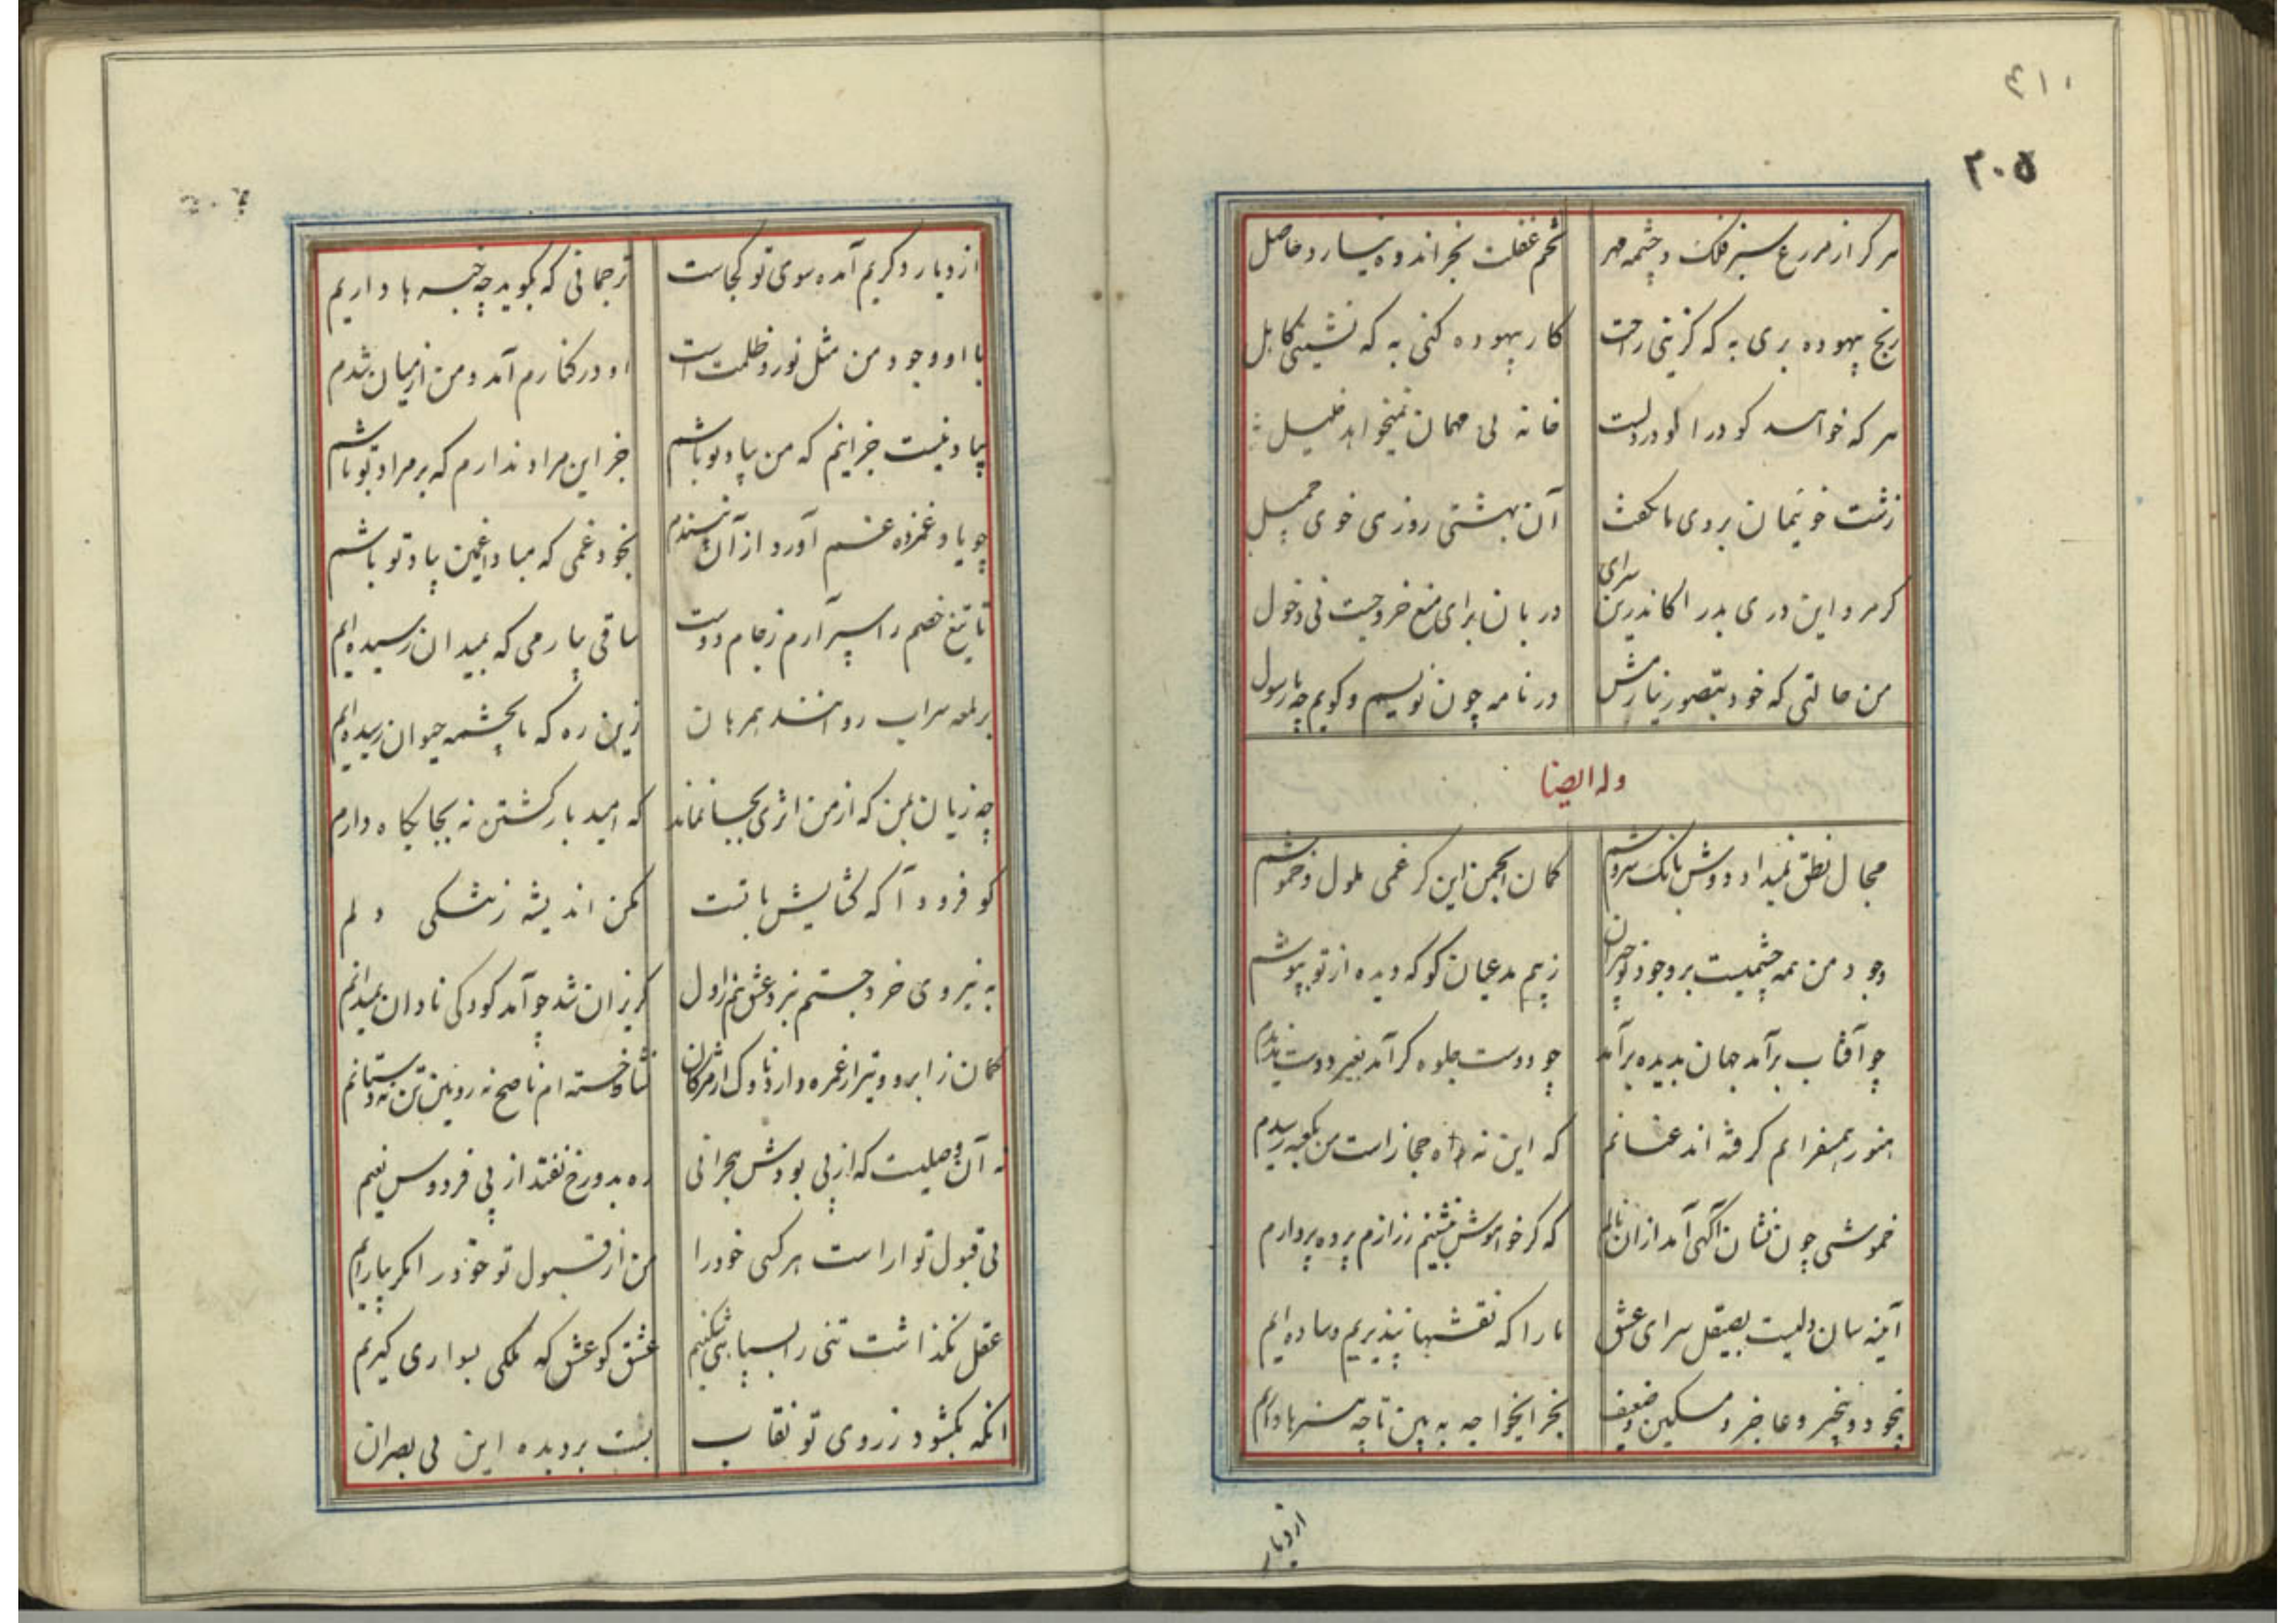 ۴۱۰
۲۰۵
هر کز از مزرع سبز فلک و چشمه مهر تخم غفلت بجز اندوه نیارد حاصل
رنج بیهوده بری به که گزینی راحت کار بیهوده کنی به که نشینی کاهل
هر که خواهد کو درا کو در دلست خانه بی مهمان نمیخواهد خلیل
زشت خوئیمان بروی ما نکفت آن بهشتی روزی خوی جمیل
کر مرد این دری بدر آ کاندرین سرای دربان برای منع خروجست نی دخول
من حالتی که خود بتصور نیارمش در نامه چون نویسم و کویم چه با رسول
وله ایضا
مجال نطق نمیداد دوش بانک سروشم کمان انجمن این کز غمی ملول و خموشم
وجود من همه چشمیست بر وجود تو حیران ز بیم مدعیان کو که دیده از تو بپوشم
چو آفتاب برآمد جهان بدیده برآمد چو دوست جلوه کر آمد بغیر دوست ندیدم
هنوز همسفرانم کرفته اند عنانم که این نه راه حجاز است من بکعبه رسیدم
خموشی چون نشان آکهی آمد از آن نالم که کر خواموش بنشینم ز رازم پرده بردارم
آینه سان دلیست بصیقل سرای عشق ما را که نقشها نپذیریم و ساده ایم
بیخود و بیخبر و عاجز و مسکین و ضعیف بخر ایخواجه به بین تا چه هنرها داریم
از دیار
از دیار دکریم آمده سوی تو کجاست ترجمانی که بکوید چه خبرها داریم
با او وجود من مثل نور و ظلمت است او در کنارم آمد و من از میان شدم
بیاد نیست جز اینم که من بیاد تو باشم جز این مراد ندارم که بر مراد تو باشم
چو یاد غمزده غم آورد از آن نپسندم بخود غمی که مباد غمین بیاد تو باشم
تا تیغ خصم را سپر آرم ز جام دوست ساقی بیار می که بمیدان رسیده ایم
بر لمعه سراب روانند همرهان زین ره که ما بچشمه حیوان رسیده ایم
چه زیان بمن که از من اثری بجا نماند که امید بازکشتن نه بجایکاه دارم
کو فرود آ که کشایش با تست مکن اندیشه ز تنکی دلم
به نیروی خرد جستم نبرد عشق هم ز اول کریزان شد چو آمد کودکی نادان بمیدانم
کمان ز ابرو و تیر از غمزه وارد ناوک از مژکان نشاه خسته ام ناصح نه روئین تن نه دستانم
نه آن وصلیست که از پی بودش هجرانی ره بدوزخ نفتد از پی فردوس نعیم
بی قبول تو آراست هر کسی خود را من از قبول تو خود را مکر بیارایم
عقل نکذاشت تنی را بسپاهی شکنیم عشق کو عشق که ملکی بسواری کیریم
آنکه بکشود ز روی تو نقاب بست بر دیده این بی بصران